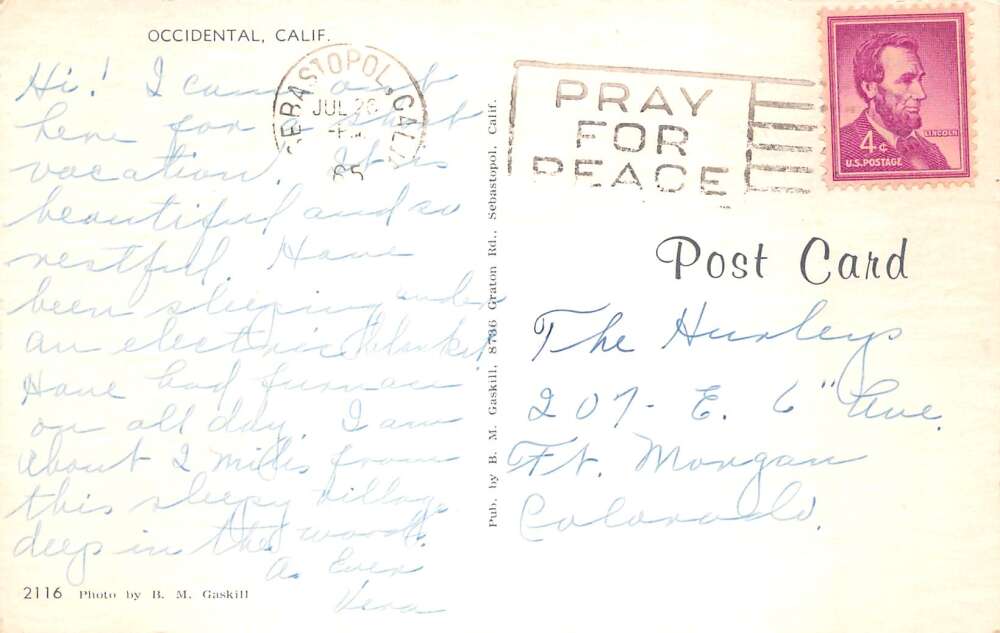 OCCIDENTAL, CALIF.
Hi! I came out
here for a short
vacation. It is
beautiful and so
restful. Have
been sleeping under
an electric blanket.
Have had furnace
on all day. I am
about 2 miles from
this sleepy village
deep in the woods.
As Ever
Vera
2116 Photo by B. M. Gaskill
SEBASTOPOL, CALIF.
JUL 26
65
Pub. by B. M. Gaskill, 8736 Graton Rd., Sebastopol, Calif.
PRAY
FOR
PEACE
LINCOLN
4¢
U.S. POSTAGE
Post Card
The Hurleys
207- E. 6" Ave.
Ft. Morgan
Colorado.